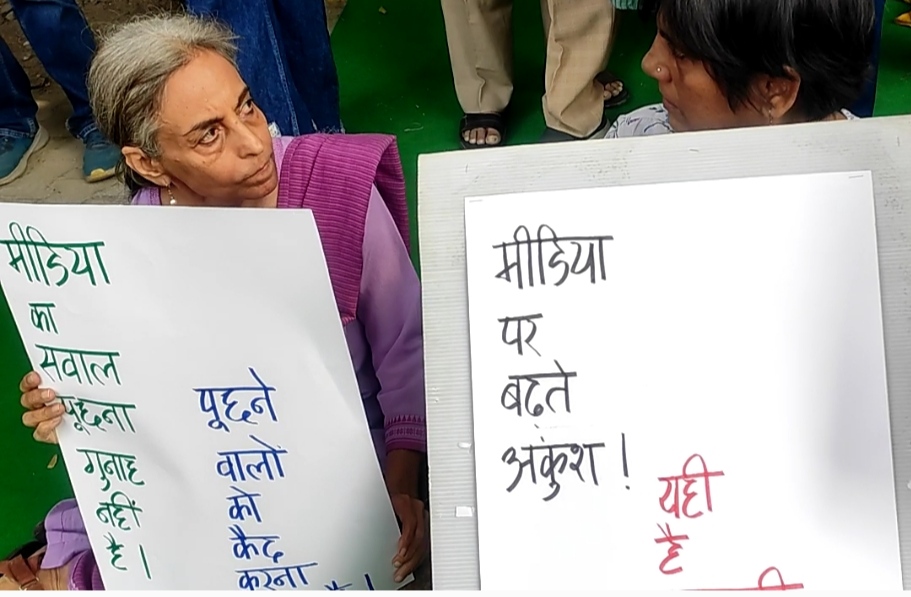 मीडिया
का
सवाल
पूछना
गुनाह
नहीं
है।
पूछने
वालों
को
कैद
करना
है।
मीडिया
पर
बढ़ते
अंकुश!
यही
है